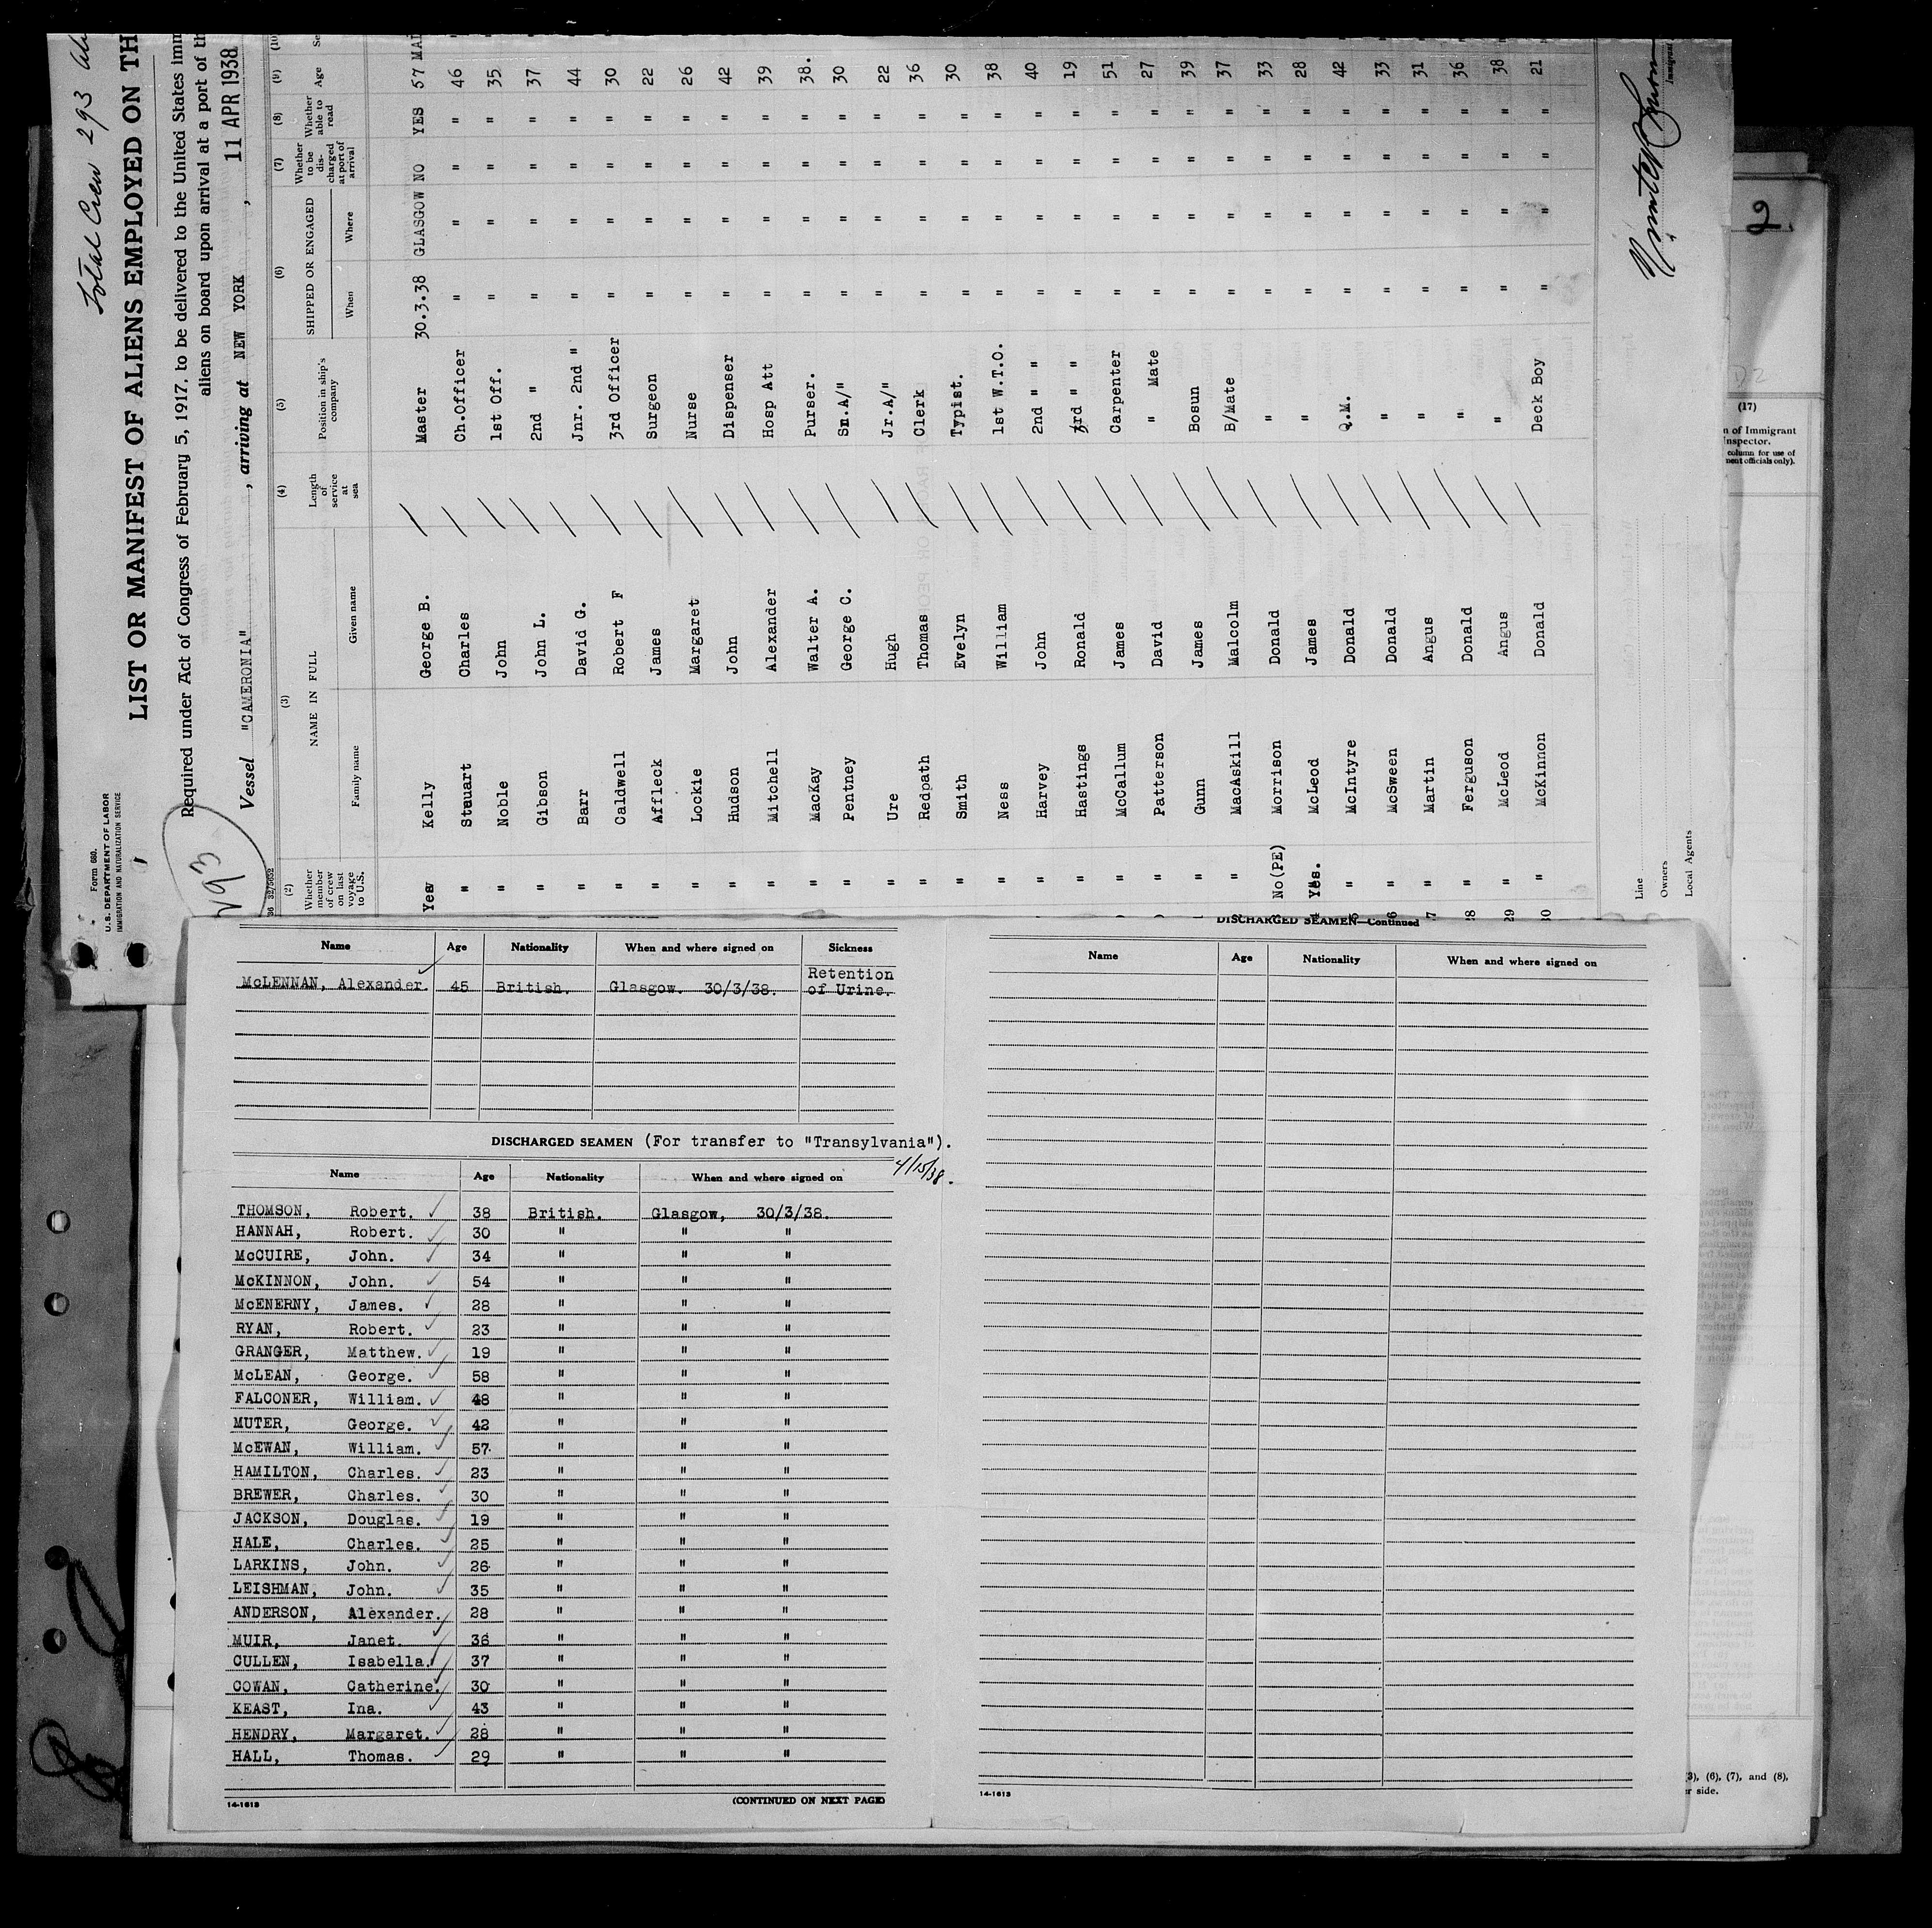 Total Crew 293
Form 680.
U. S. DEPARTMENT OF LABOR
IMMIGRATION AND NATURALIZATION SERVICE
LIST OR MANIFEST OF ALIENS EMPLOYED ON TH
Required under Act of Congress of February 5, 1917, to be delivered to the United States imm
aliens on board upon arrival at a port of th
293
Vessel "CAMERONIA" , arriving at NEW YORK , 11 APR 1938
(2) (3) (4) (5) (6) (7) (8) (9) (10
Whether member of crew on last voyage to U.S. NAME IN FULL Family name Given name Length of service at sea Position in ship's company SHIPPED OR ENGAGED When Where Whether to be discharged at port of arrival Whether able to read Age Se
Yes Kelly George B. Master 30.3.38 GLASGOW NO YES 57 MAL
" Stuuart Charles Ch.Officer " " " " 46 "
" Noble John 1st Off. " " " " 35 "
" Gibson John L. 2nd " " " " " 37 "
" Barr David G. Jnr. 2nd " " " " " 44 "
" Caldwell Robert F 3rd Officer " " " " 30 "
" Affleck James Surgeon " " " " 22 "
" Lockie Margaret Nurse " " " " 26 "
" Hudson John Dispenser " " " " 42 "
" Mitchell Alexander Hosp Att " " " " 39 "
" MacKay Walter A. Purser. " " " " 38. "
" Pentney George C. Sn.A/" " " " " 30 "
" Ure Hugh Jr.A/" " " " " 22
" Redpath Thomas Clerk " " " " 36
" Smith Evelyn Typist. " " " " 30 "
" Ness William 1st W.T.O. " " " " 38 "
" Harvey John 2nd " " " " " " 40 "
" Hastings Ronald 3rd " " " " " " 19 "
" McCallum James Carpenter " " " " 51 "
" Patterson David " Mate " " " " 27 "
" Gunn James Bosun " " " " 39 "
" MacAskill Malcolm B/Mate " " " " 37 "
No(PE) Morrison Donald " " " " " 33 "
Yes. McLeod James " " " " " 28 "
5 " McIntyre Donald Q.M. " " " " 42 "
6 " McSween Donald " " " " " 33 "
7 " Martin Angus " " " " " 31 "
28 " Ferguson Donald " " " " " 36 "
29 " McLeod Angus " " " " " 38 "
30 " McKinnon Donald Deck Boy " " " " 21 "
Line
Owners
Local Agents
Immigrant
2
(17)
n of Immigrant
nspector.
column for use of
ment officials only).
Name Age Nationality When and where signed on Sickness
McLENNAN, Alexander. 45 British. Glasgow. 30/3/38. Retention of Urine.
DISCHARGED SEAMEN (For transfer to "Transylvania").
4/15/38.
Name Age Nationality When and where signed on
THOMSON, Robert. 38 British. Glasgow, 30/3/38.
HANNAH, Robert. 30 " " "
McCUIRE, John. 34 " " "
McKINNON, John. 54 " " "
McENERNY, James. 28 " " "
RYAN, Robert. 23 " " "
GRANGER, Matthew. 19 " " "
McLEAN, George. 58 " " "
FALCONER, William. 48 " " "
MUTER, George. 42 " " "
McEWAN, William. 57. " " "
HAMILTON, Charles. 23 " " "
BREWER, Charles. 30 " " "
JACKSON, Douglas. 19 " " "
HALE, Charles. 25 " " "
LARKINS, John. 26 " " "
LEISHMAN, John. 35 " " "
ANDERSON, Alexander. 28 " " "
MUIR, Janet. 36 " " "
CULLEN, Isabella. 37 " " "
COWAN, Catherine. 30 " " "
KEAST, Ina. 43 " " "
HENDRY, Margaret. 28 " " "
HALL, Thomas. 29 " " "
14-1613 (CONTINUED ON NEXT PAGE)
DISCHARGED SEAMEN—Continued
Name Age Nationality When and where signed on
14-1613
(3), (6), (7), and (8),
er side.